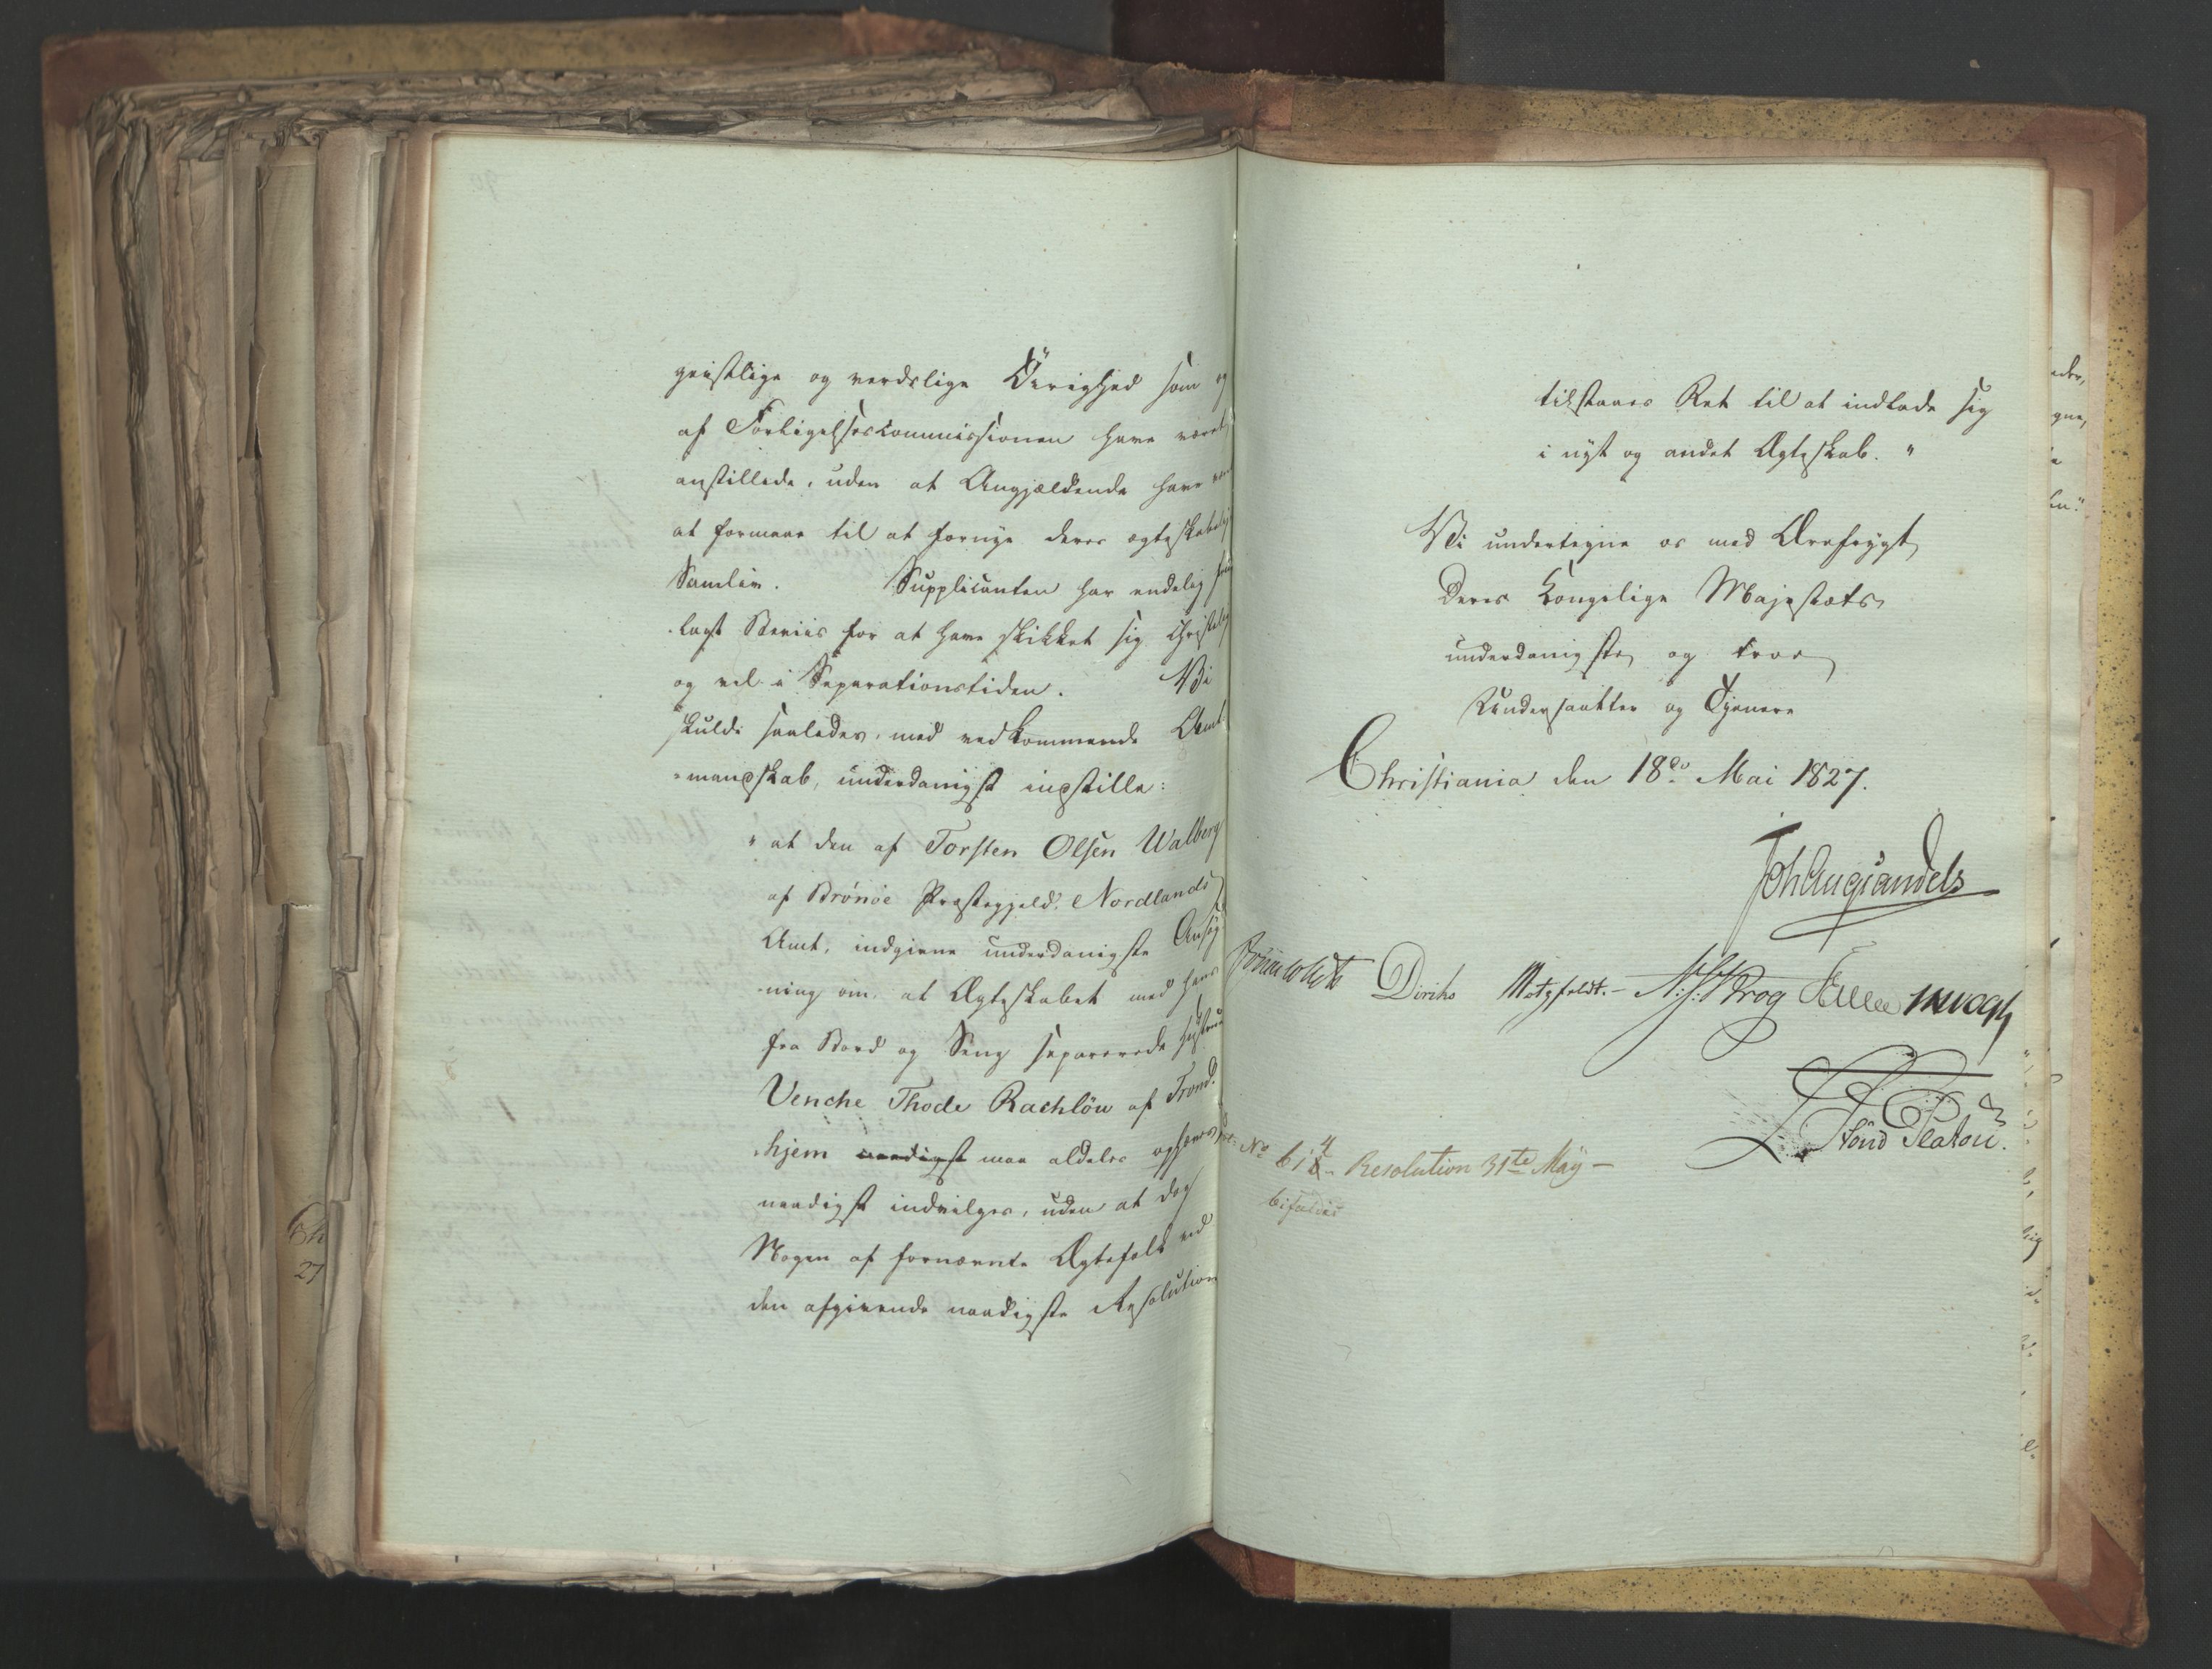 geistlige og verdslige Övrighed som og
af Forligelsescommissionen have været
anstillede, uden at Angjældende have
at formaae til at fornye deres ægteskabelig
Samliv. Supplicanten har endelig frem
-lagt Beviis for at have skikket sig Christelig
og vel i Separationstiden. Vi
skulde saaledes, med vedkommende Amt
-mandskab, underdanigst indstille:
" at den af Torsten Olsen Walberg
af Brönöe Præstegjeld, Nordlands
Amt, indgivne underdanigste Ansög
-ning om, at Ægteskabet med hans
fra Bord og Seng separerede Hustrue
Venche Thode Rachlöw af Trond-
-hjem naadigst maa aldeles ophæves,
naadigst indvilges, uden at dog
Nogen af fornævnte Ægtefolk ved
den afgivende naadigste Resolution
tilstaaes Ret til at indlade sig
i nyt og andet Ægteskab. "
Vi undertegne os med Ærefrygt
Deres Kongelige Majestæts
underdanigste og troe
Undersaatter og Tjenere
Christiania den 18de Mai 1827.
Joh Aug Sandels
Diriks Motzfeldt.- N: J: Krog JHVogt
No 614 - Resolution 31te May -
bifaldes
Platou.
Ch
27